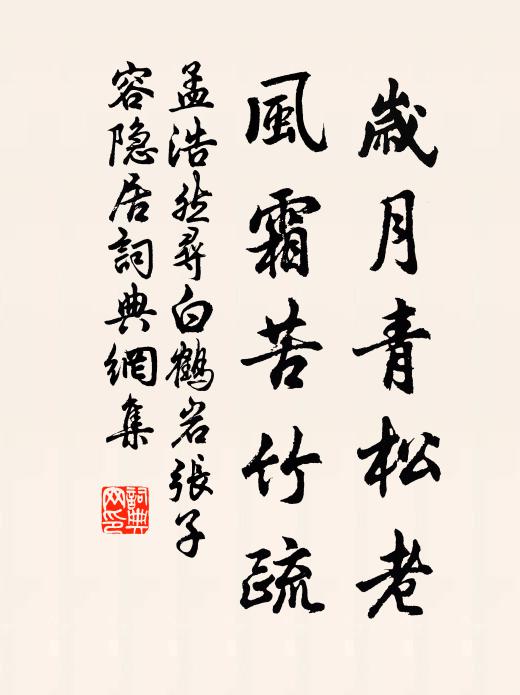 歲月青松老
風霜苦竹疏
孟浩然尋白鶴岩張子
容隐居詞典網集
詞典
网印